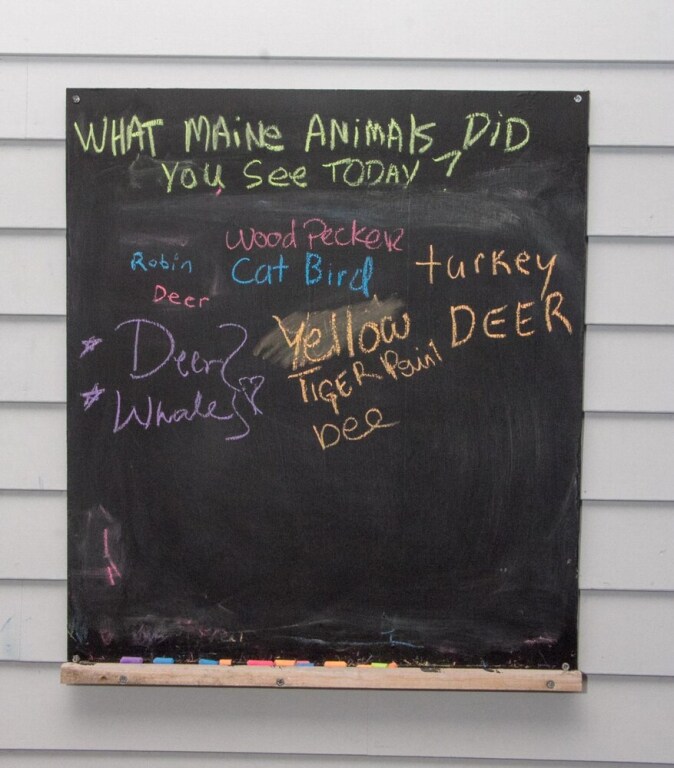 WHAT MAINE ANIMALS, DID
YOU See TODAY ?
WoodPecker
Robin
Cat Bird
turkey
Deer
Yellow
DEER
Deer
TIGER
Whale
Bee